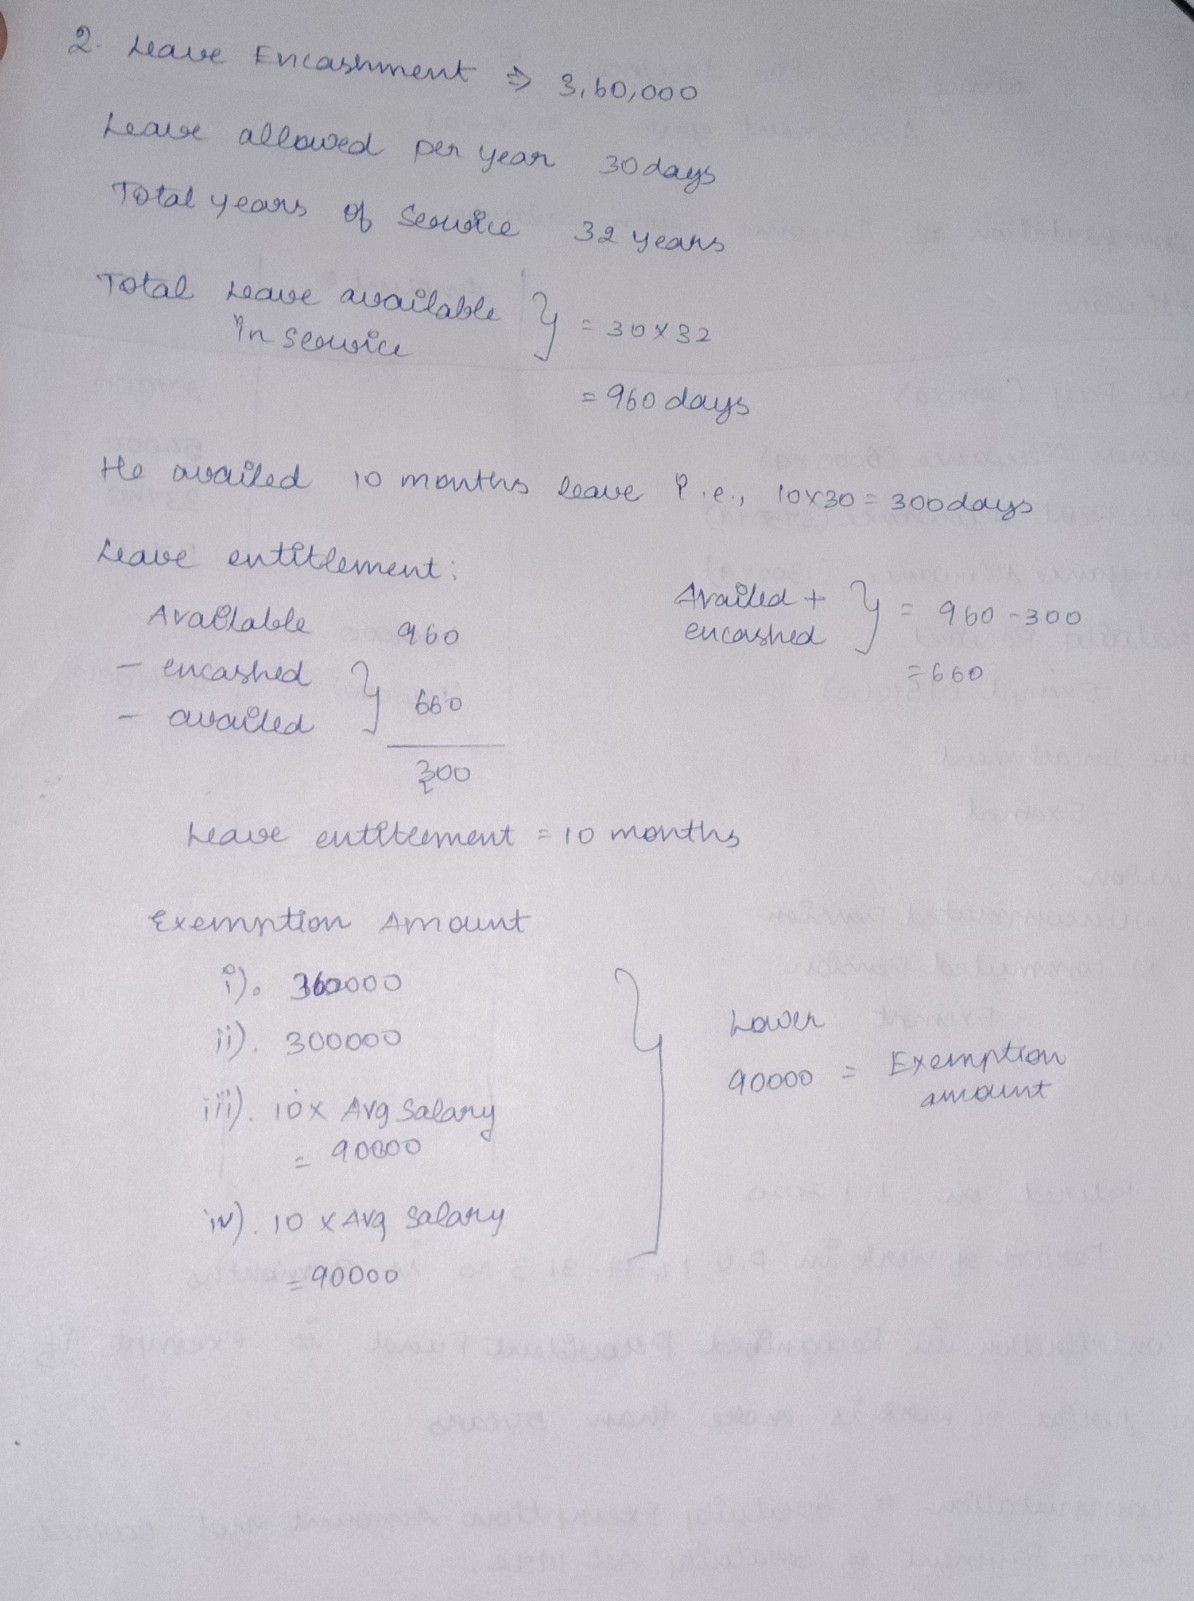 2. Leave Encashment ⇒ 3,60,000
Leave allowed per year 30 days
Total years of Service 32 years
Total Leave available
in service } = 30 x 32
= 960 days
He availed 10 months leave i.e., 10x30 = 300 days
Leave entitlement:
Available 960
- encashed
- availed } 660
300
Availed +
encashed } = 960 - 300
= 660
Leave entitlement = 10 months
Exemption Amount
i). 360000
ii). 300000
iii). 10 x Avg Salary
= 90000
iv). 10 x Avg Salary
= 90000
Lower
90000 = Exemption
amount